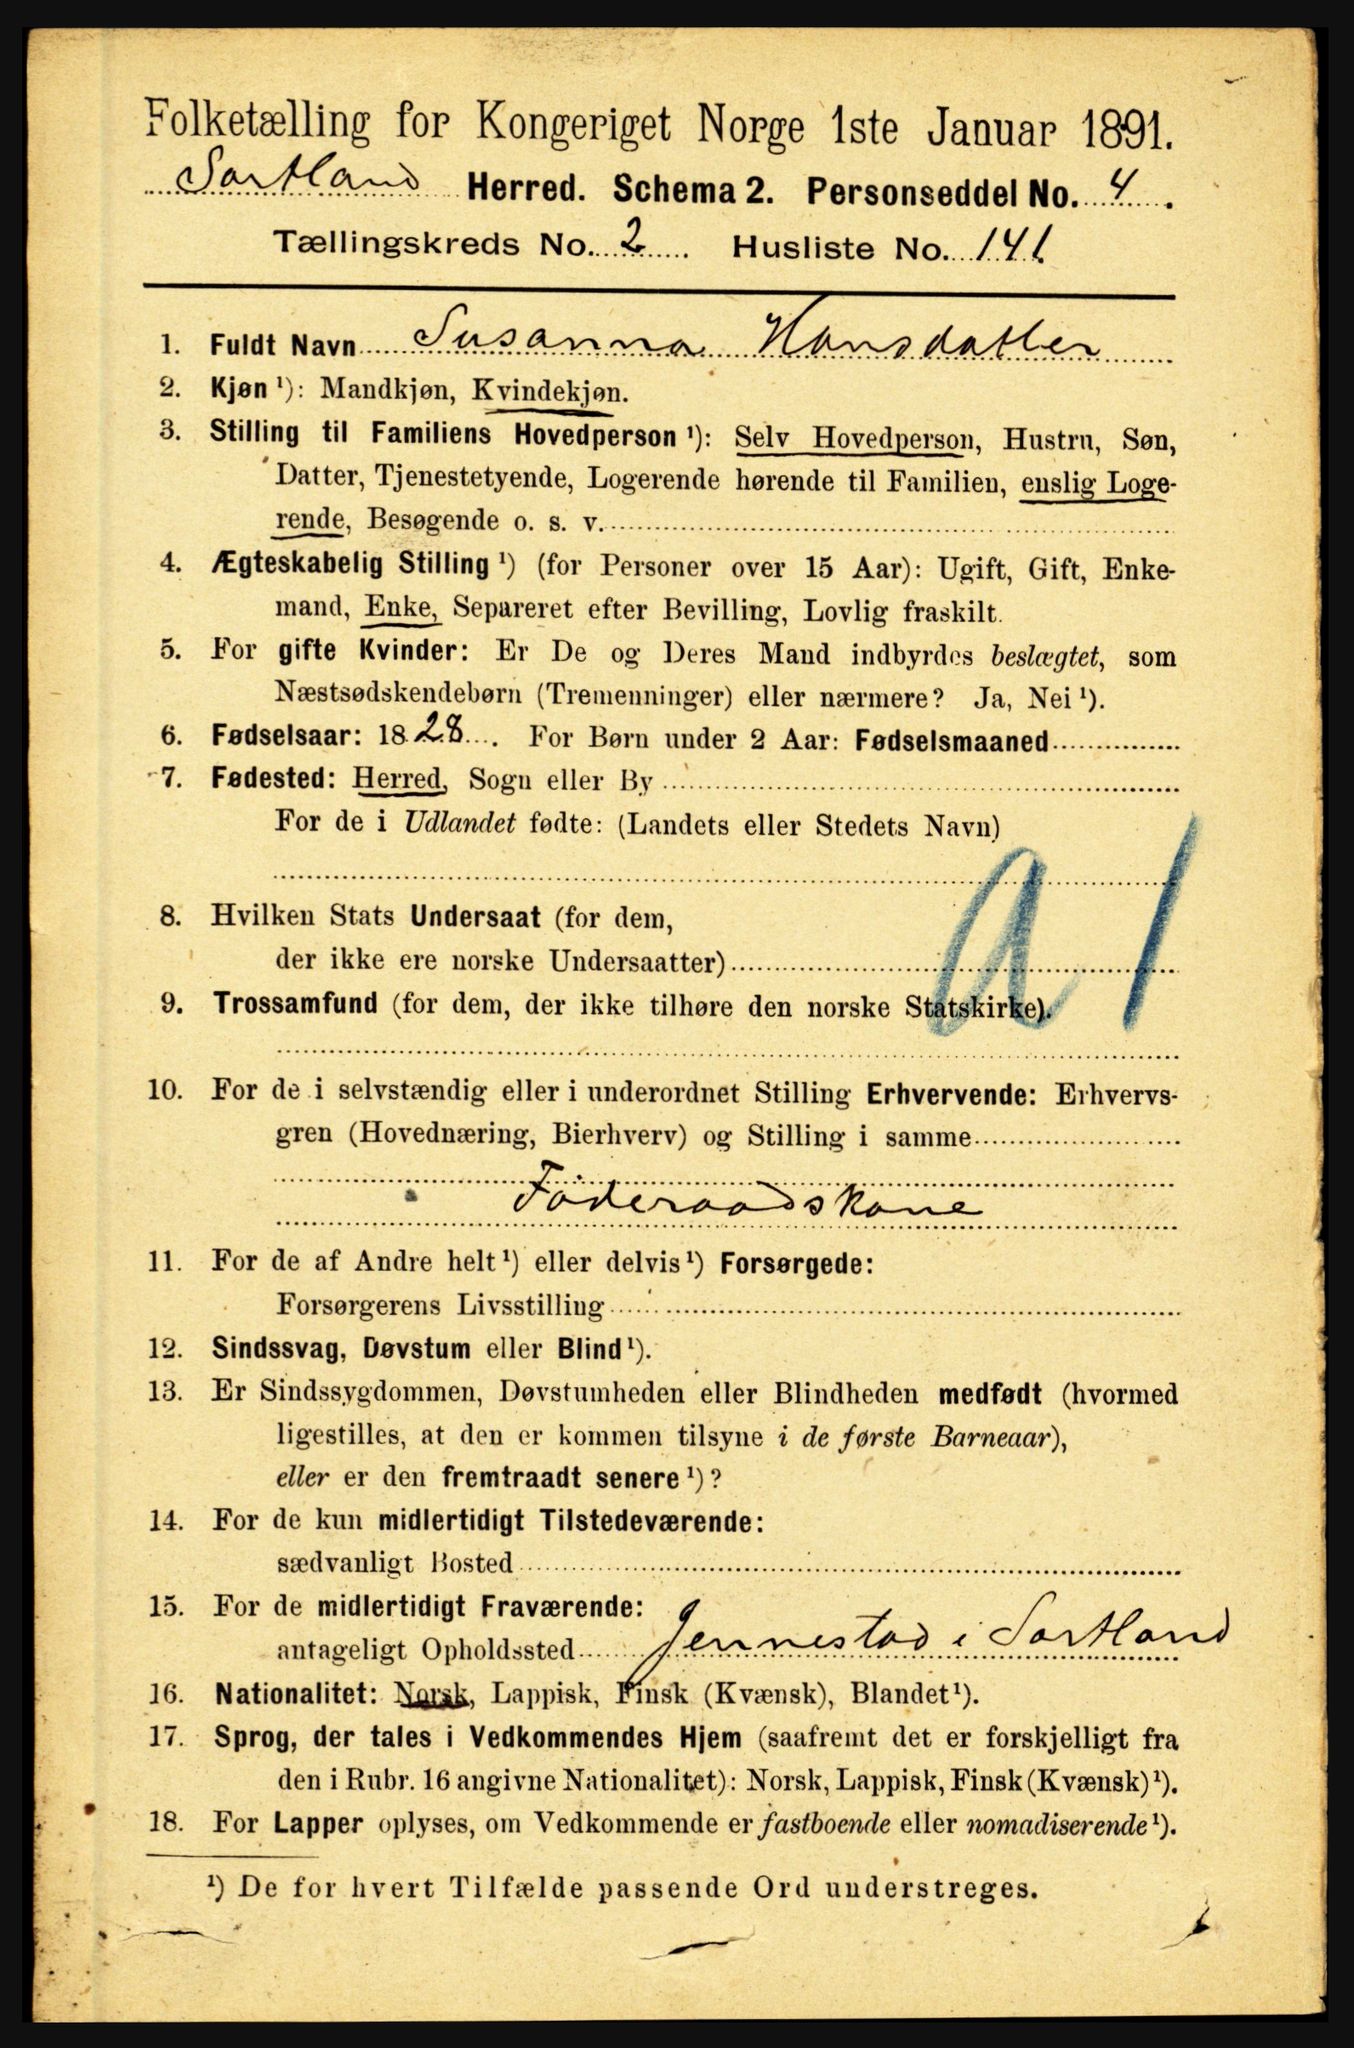 Folketælling for Kongeriget Norge 1ste Januar 1891.
Sortland Herred. Schema 2. Personseddel No. 4.
Tællingskreds No. 2. Husliste No. 141
1. Fuldt Navn Susanna Hansdatter
2. Kjøn ¹): Mandkjøn, Kvindekjøn.
3. Stilling til Familiens Hovedperson ¹): Selv Hovedperson, Hustru, Søn,
Datter, Tjenestetyende, Logerende hørende til Familien, enslig Loge-
rende, Besøgende o. s. v.
4. Ægteskabelig Stilling ¹) (for Personer over 15 Aar): Ugift, Gift, Enke-
mand, Enke, Separeret efter Bevilling, Lovlig fraskilt.
5. For gifte Kvinder: Er De og Deres Mand indbyrdes beslægtet, som
Næstsødskendebørn (Tremenninger) eller nærmere? Ja, Nei ¹).
6. Fødselsaar: 1828. For Børn under 2 Aar: Fødselsmaaned
7. Fødested: Herred, Sogn eller By
For de i Udlandet fødte: (Landets eller Stedets Navn)
A1
8. Hvilken Stats Undersaat (for dem,
der ikke ere norske Undersaatter)
9. Trossamfund (for dem, der ikke tilhøre den norske Statskirke).
10. For de i selvstændig eller i underordnet Stilling Erhvervende: Erhvervs-
gren (Hovednæring, Bierhverv) og Stilling i samme
Föderaadskone
11. For de af Andre helt ¹) eller delvis ¹) Forsørgede:
Forsørgerens Livsstilling
12. Sindssvag, Døvstum eller Blind ¹).
13. Er Sindssygdommen, Døvstumheden eller Blindheden medfødt (hvormed
ligestilles, at den er kommen tilsyne i de første Barneaar),
eller er den fremtraadt senere ¹)?
14. For de kun midlertidigt Tilstedeværende:
sædvanligt Bosted
15. For de midlertidigt Fraværende:
antageligt Opholdssted Jennestad i Sortland
16. Nationalitet: Norsk, Lappisk, Finsk (Kvænsk), Blandet ¹).
17. Sprog, der tales i Vedkommendes Hjem (saafremt det er forskjelligt fra
den i Rubr. 16 angivne Nationalitet): Norsk, Lappisk, Finsk (Kvænsk) ¹).
18. For Lapper oplyses, om Vedkommende er fastboende eller nomadiserende ¹).
¹) De for hvert Tilfælde passende Ord understreges.